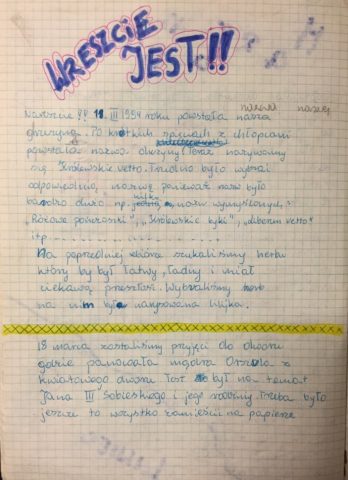 WRESZCIE
JEST!!
nazwa naszej
Nareszcie!! 18. III 1994 roku powstała nasza
drużyna. Po krótkich sporach z chłopcami
powstała nazwa drużyny. Teraz nazywamy
się "Królewskie Vetto". Trudno było wybrać
odpowiednią nazwę ponieważ nazw było
bardzo dużo np. kilka nazw wymyślonych,:
"Różowe pomroszki", "Królewskie byki", "Liberum vetto"
itp.
Na poprzedniej zbiórce szukaliśmy herbu
który by był łatwy, ładny i miał
ciekawą przeszłość. Wybraliśmy
na nim była narysowana lilijka.
18 marca zostaliśmy przyjęci do dworu
gdzie panowała mądra Orszula z
kwiatowego dworu. Test był na temat
Jana III Sobieskiego i jego rodziny. Trzeba było
jeszcze to wszystko zamieścić na papierze